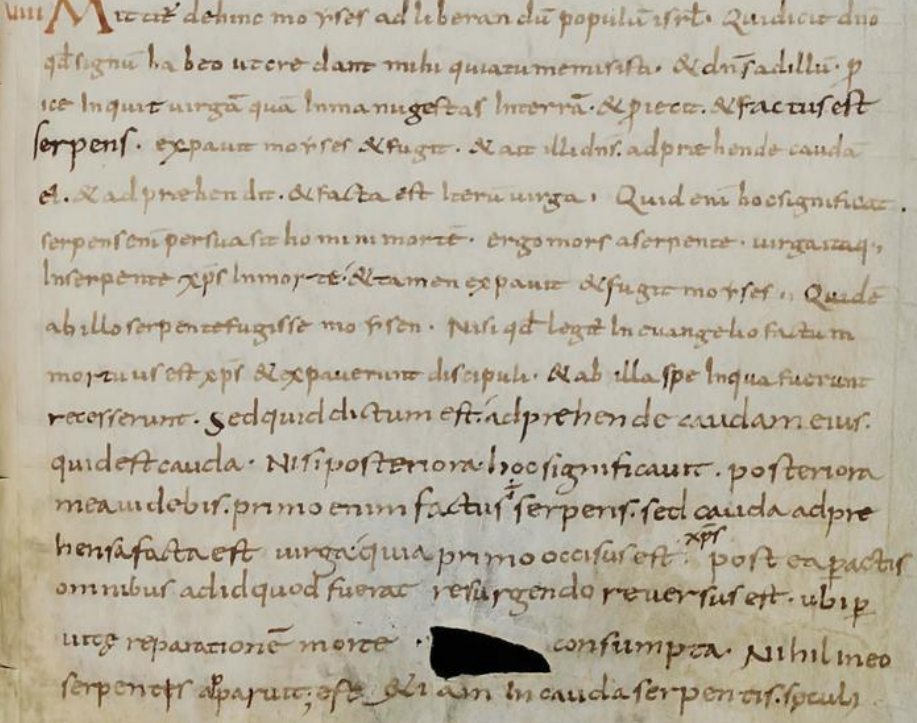 VIIII Mittit̄ dehinc moyses ad liberandū populū isrl̄. Qui dicit dn̄o
qd̄ signū habeo ut credant mihi quia tu me misisti. & dn̄s ad illū. p
ice Inquit virgā quā In manu gestas In terrā. & p̱iecit. & factus est
serpens. expavit moyses & fugit. & ait illi dn̄s. adpraehende caudā
ei. & adpraehendit. & facta est Iterū virga. Quid enī hoc significat.
serpens enī persuasit homini mortē. ergo mors a serpente. virga itaq.,
In serpente xp̄s In morte. & tamen expavit & fugit moyses., Quid ē
ab illo serpente fugisse moysen. Nisi qd̄ legit̄ In evangelio factum
mortuus est xp̄s & expaverunt discipuli. & ab illa spe In qua fuerunt
recesserunt. Sed quid dictum est. adprehende caudam eius.
quid est cauda. Nisi posteriora. hoc significavit. posteriora
mea videbis. primo enim factus ÷ serpens. sed cauda adpre
hensa facta est virga. quia primo occisus est. xp̄s post ea pactis
omnibus ad id quod fuerat resurgendo reversus est. ubi p
vitę reparationē morte consumpta. Nihil in eo
serpentis apparuit, est &iam In cauda serpentis. sęculi